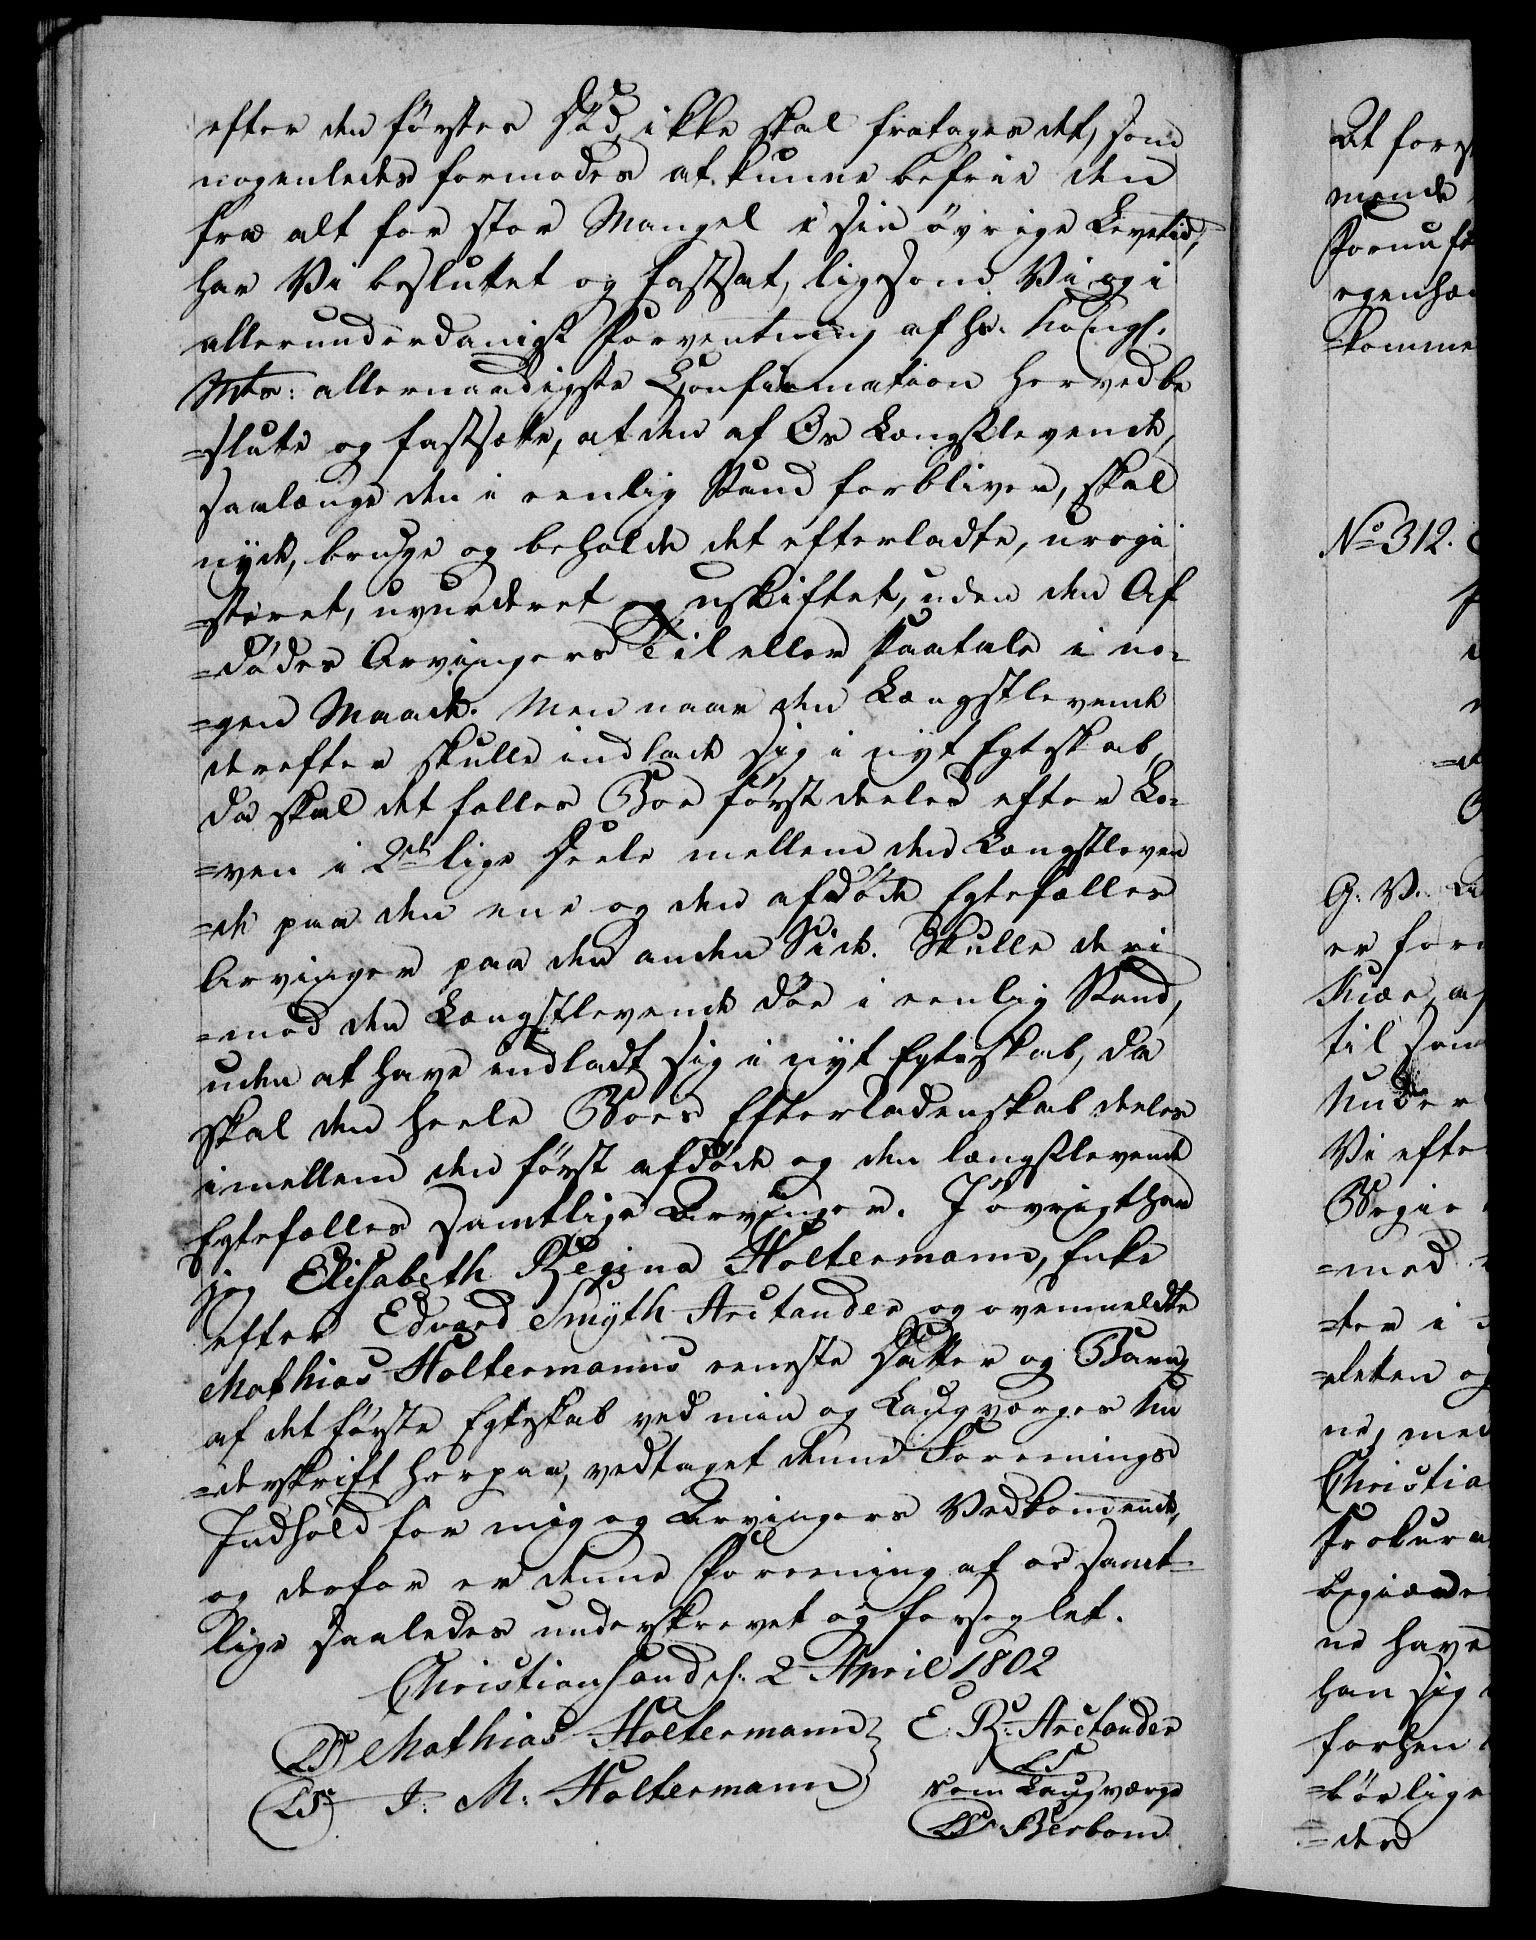 efter den førstes Død, ikke skal fratages det, som
nogenledes formodes at kunne befrie den
fra alt for stor Mangel i sin øvrige Levetid,
har Vi besluttet og fastsat, ligesom Vi og i
allerunderdanigst Forventning af Hs. Kongl.
Mts: allernaadigste Confirmation herved be
=slutte og fastsætte, at den af Os Længstlevende,
saalænge den i eenlig Stand forbliver, skal
nyde, bruge og beholde det efterladte, uregi
=streret, uvurderet og uskiftet, uden den Af
=dødes Arvingers Til eller Paatale i no=
=gen Maade. Men naar den Længstlevende
derefter skulle indlade sig i nyt Egteskab,
da skal det fælles Boe først deeles efter Lo=
=ven i 2de lige Deele mellem den Længstleven
=de paa den ene og den afdøde Egtefælles
Arvinger paa den anden Side. Skulle deri
=mod den Længstlevende døe i eenlig Stand,
uden at have indladt sig i nyt Egteskab, da
skal den heele Boes Efterladenskab deeles
imellem den først afdøde og den længstlevende
Egtefælles samtlige Arvinger. I øvrigt har
jeg Elisabeth Regina Holtermann, Enke
efter Edvard Smyth Arctander og ovenmeldte
Mathias Holtermanns eneste Datter og Barn
af det første Egteskab ved min og Laugværges Un
=derskrift herpaa, vedtaget denne Foreenings
Indhold for mig og Arvingers Vedkommende,
og derfor er denne Foreening af os samt=
lige saaledes underskrevet og forseglet.
Christiansand d. 2 April 1802
LS Mathias Holtermann E. R. Arctander
LS
LS J. M. Holtermann som Laugværge
LS Berbom
At fores
mende
egenhæn
=komme
No 312.
G. V.
er for
til som
Under
Vi efte
=med
=ter i
=deten og
ne, med
Christia
Prokura
begiære
ne have
han sig
forhen
=børlige
=der